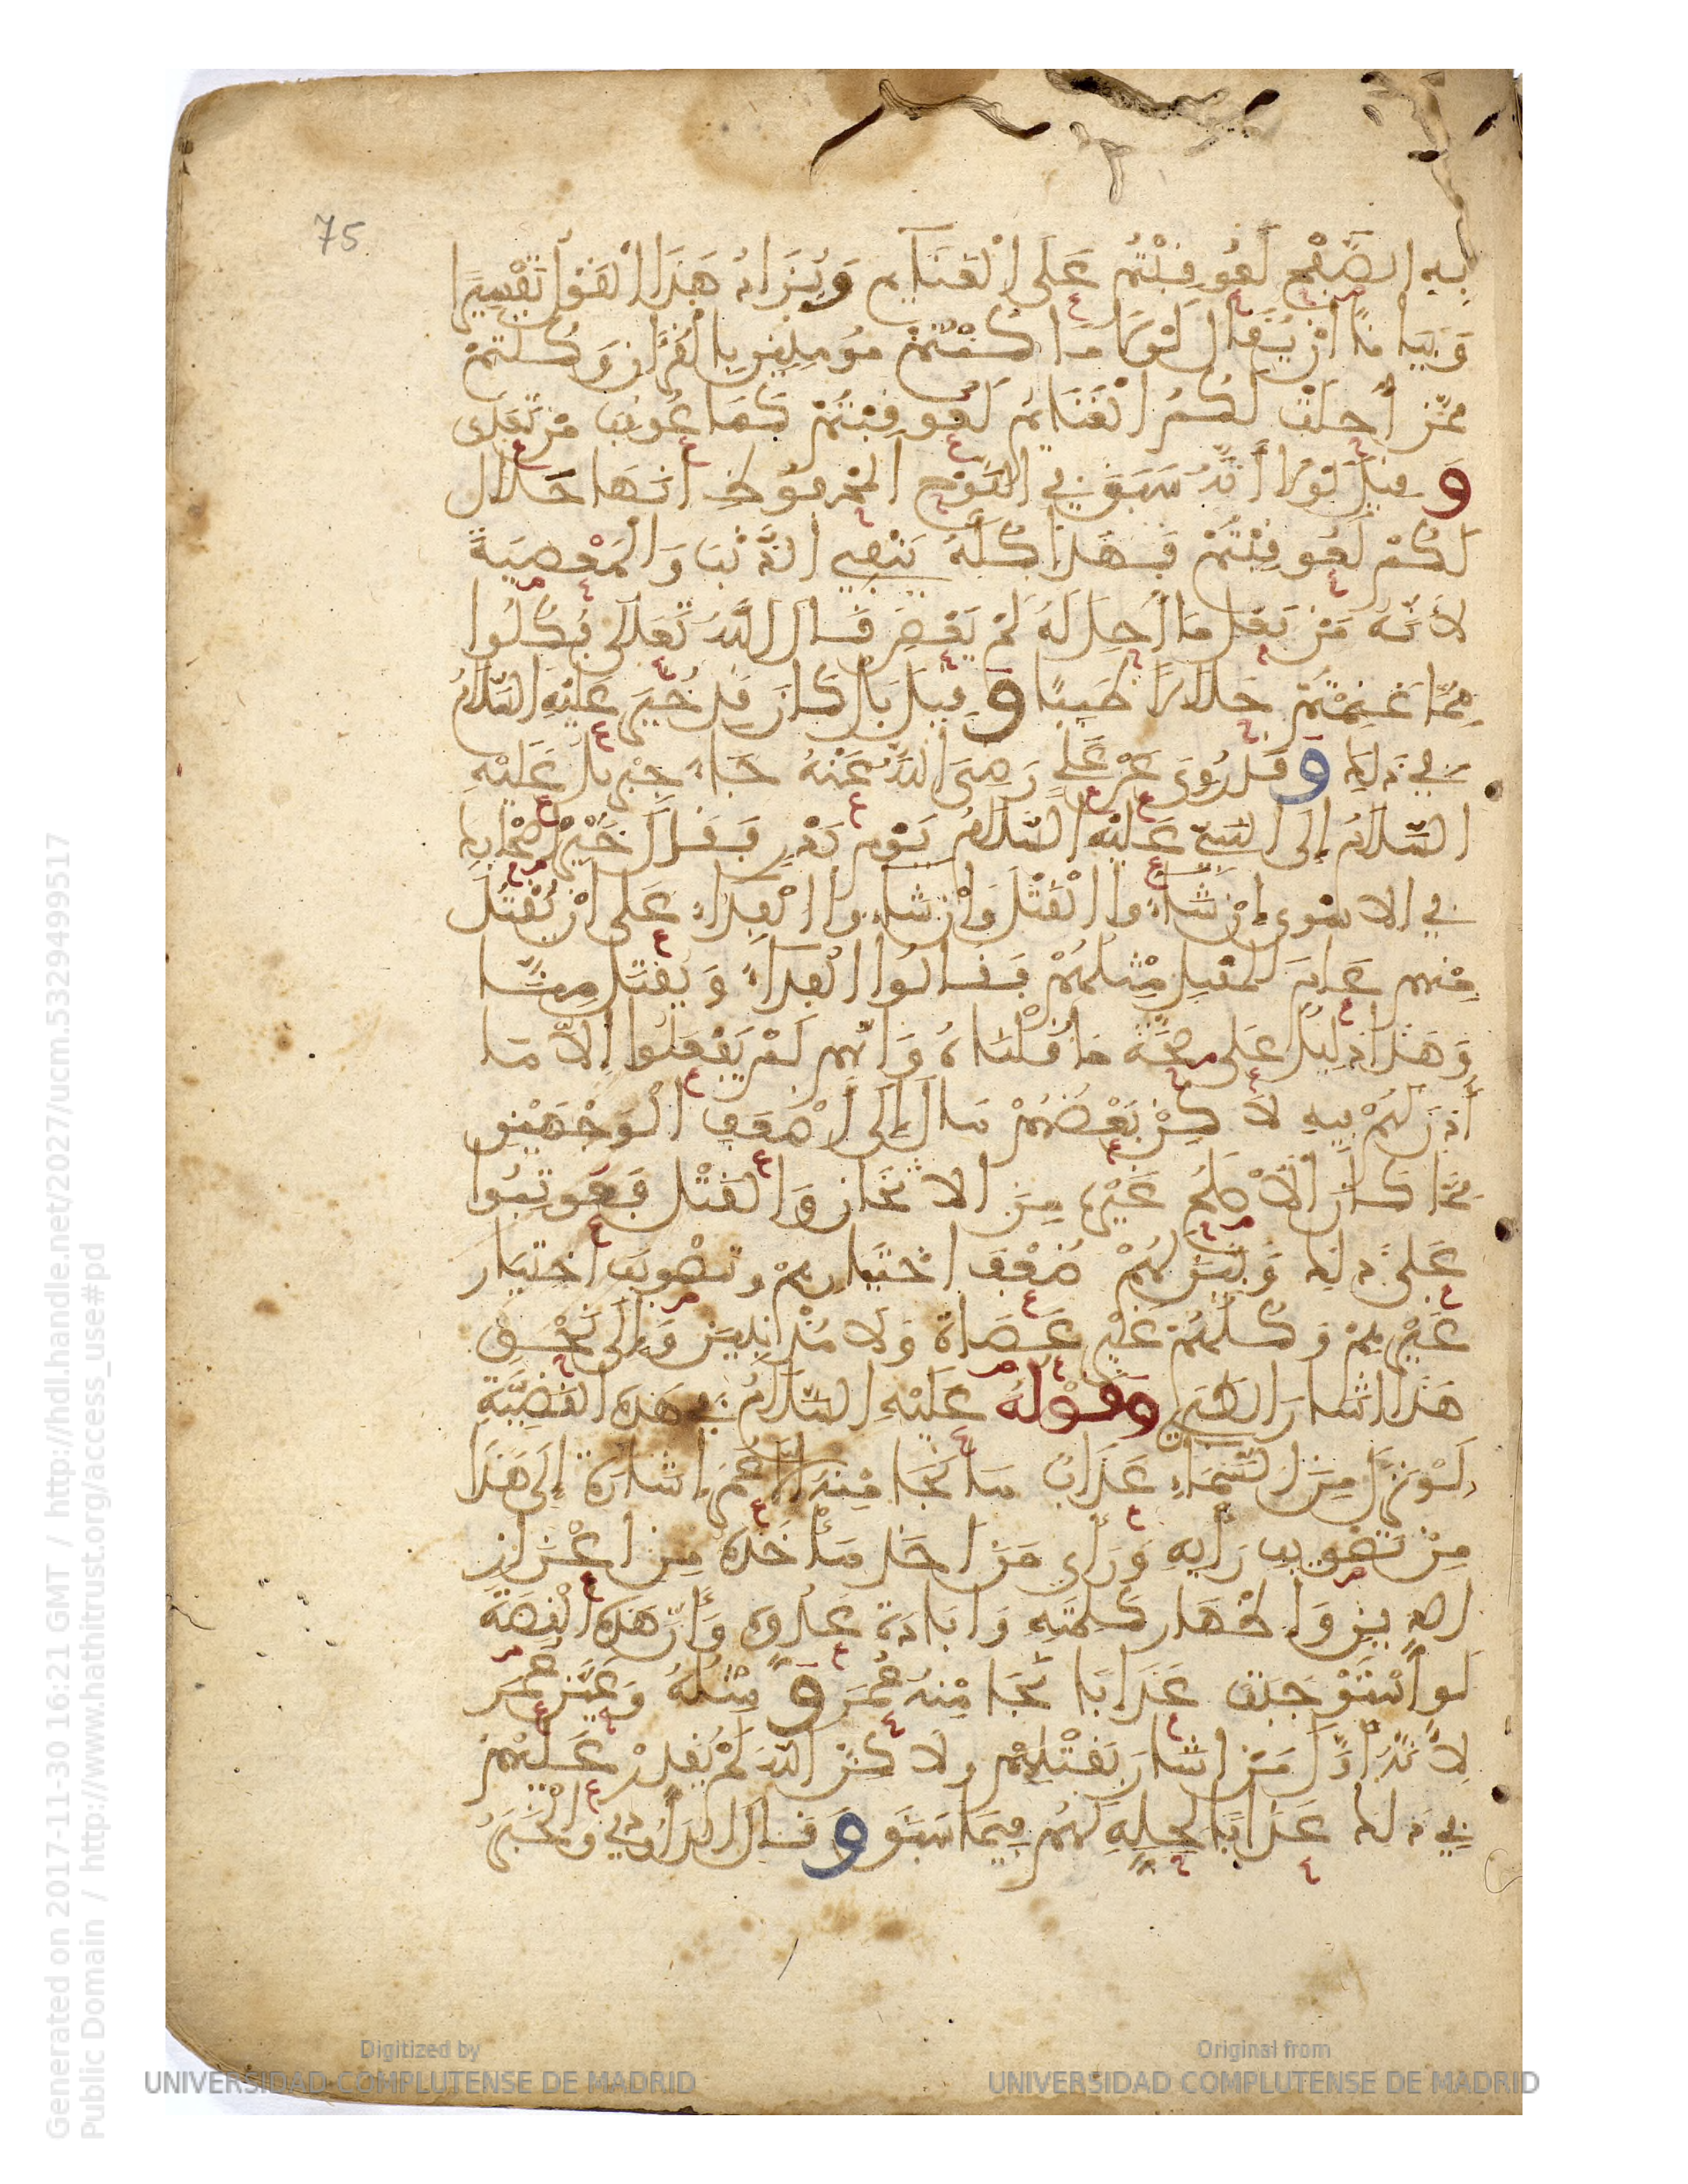 75
به الصَّفْحَ لَعُوقِبْتُمْ عَلَى الْغَنَائِمِ وَيُزَادُ هَذَا الْقَوْلُ تَفْسِيرًا
وَبَيَانًا أَنْ يُقَالَ لَوْلَا مَا كُنْتُمْ مُؤْمِنِينَ بِالْقُرْآنِ وَكُنْتُمْ
مِمَّنْ أُحِلَّتْ لَكُمُ الْغَنَائِمُ لَعُوقِبْتُمْ كَمَا عُوقِبَ مَنْ تَعَدَّى
وَقِيلَ لَوْلَا أَنَّهُ سَبَقَ فِي اللَّوْحِ الْمَحْفُوظِ أَنَّهَا حَلَالٌ
لَكُمْ لَعُوقِبْتُمْ فَهَذَا كُلُّهُ يَنْفِي الذَّنْبَ وَالْمَعْصِيَةَ
لِأَنَّهُ مَنْ فَعَلَ مَا أُحِلَّ لَهُ لَمْ يَعْصِ قَالَ اللَّهُ تَعَالَى فَكُلُوا
مِمَّا غَنِمْتُمْ حَلَالًا طَيِّبًا وَقِيلَ بَلْ كَانَ قَدْ خُيِّرَ عَلَيْهِ السَّلَامُ
فِي ذَلِكَ وَقَدْ رُوِيَ عَنْ عَلِيٍّ رَضِيَ اللَّهُ عَنْهُ جَاءَ جِبْرِيلُ عَلَيْهِ
السَّلَامُ إِلَى النَّبِيِّ عَلَيْهِ السَّلَامُ يَوْمَ بَدْرٍ فَقَالَ خَيِّرْ أَصْحَابَكَ
فِي الْأَسْرَى إِنْ شَاءُوا الْقَتْلَ وَإِنْ شَاءُوا الْفِدَاءَ عَلَى أَنْ يُقْتَلَ
مِنْهُمْ عَامَ الْمُقْبِلِ مِثْلُهُمْ فَقَالُوا الْفِدَاءَ وَيُقْتَلُ مِنَّا
وَهَذَا دَلِيلٌ عَلَى صِحَّةِ مَا قُلْنَاهُ وَأَنَّهُمْ لَمْ يَفْعَلُوا إِلَّا مَا
أُذِنَ لَهُمْ فِيهِ لَاكِنْ بَعْضُهُمْ مَالَ إِلَى أَضْعَفِ الْوَجْهَيْنِ
مِمَّا كَانَ الْأَصْلَحُ غَيْرَهُ مِنَ الْإِثْخَانِ وَالْقَتْلِ فَعُوتِبُوا
عَلَى ذَلِكَ وَبُيِّنَ لَهُمْ ضُعْفُ اخْتِيَارِهِمْ وَتَصْوِيبُ اخْتِيَارِ
غَيْرِهِمْ وَكُلُّهُمْ غَيْرُ عُصَاةٍ وَلَا مُذْنِبِينَ وَإِلَى نَحْوِ
هَذَا أَشَارَ الطَّبَرِي وَقَوْلُهُ عَلَيْهِ السَّلَامُ فِي هَذِهِ الْقَضِيَّةِ
لَوْ نَزَلَ مِنَ السَّمَاءِ عَذَابٌ مَا نَجَا مِنْهُ إِلَّا عُمَرُ إِشَارَةً إِلَى هَذَا
مِنْ تَصْوِيبِ رَأْيِهِ وَرَأْيِ مَنْ أَخَذَ مَأْخَذَهُ مِنْ إِعْزَازِ
الدِّينِ وَإِظْهَارِ كَلِمَتِهِ وَإِبَادَةِ عَدُوِّهِ وَأَنَّ هَذِهِ الْقِصَّةَ
لَوِ اسْتَوْجَبَتْ عَذَابًا نَجَا مِنْهُ عُمَرُ وَمِثْلُهُ وَعَيَّنَ عُمَرَ
لِأَنَّهُ أَوَّلُ مَنْ أَشَارَ بِقَتْلِهِمْ وَلَاكِنَّ اللَّهَ لَمْ يُقَدِّرْ عَلَيْهِمْ
فِي ذَلِكَ عَذَابًا لِحِلِّهِ لَهُمْ فِيمَا سَبَقَ وَقَالَ الدَّاوُدِي وَالْخَبَرُ
Generated on 2017-11-30 16:21 GMT / http://hdl.handle.net/2027/ucm.5329499517
Public Domain / http://www.hathitrust.org/access_use#pd
Digitized by
UNIVERSIDAD COMPLUTENSE DE MADRID
Original from
UNIVERSIDAD COMPLUTENSE DE MADRID